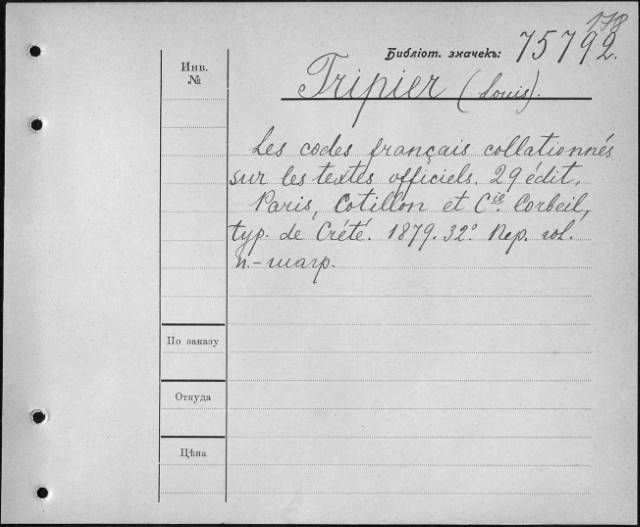 178
Библіот. значекъ: 75792.
Инв.
№
Tripier (Louis).
Les codes français collationnés
sur les textes officiels. 29 édit.
Paris, Cotillon et Cie. Corbeil,
typ. de Crété. 1879. 32º. Пер. vol.
п.-шагр.
По заказу
Откуда
Цѣна